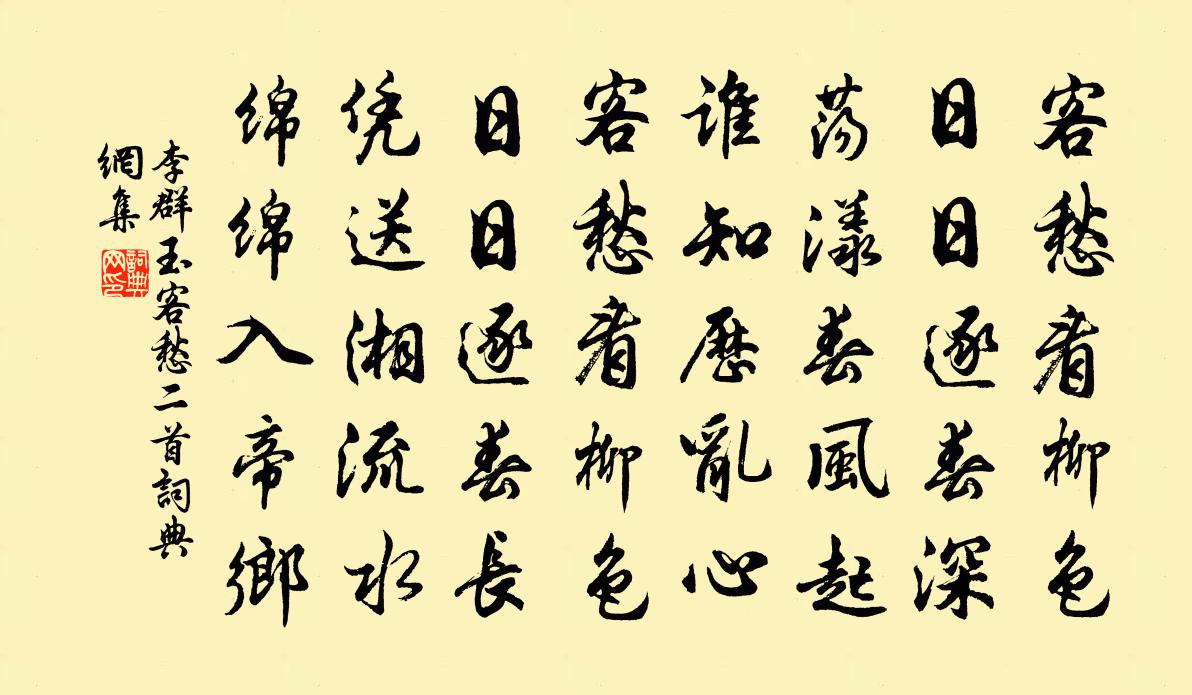 客愁看柳色
日日逐春深
荡漾春風起
誰知歷亂心
客愁看柳色
日日逐春長
凭送湘流水
绵绵入帝鄉
李群玉客愁二首詞典
網集
詞典
网印